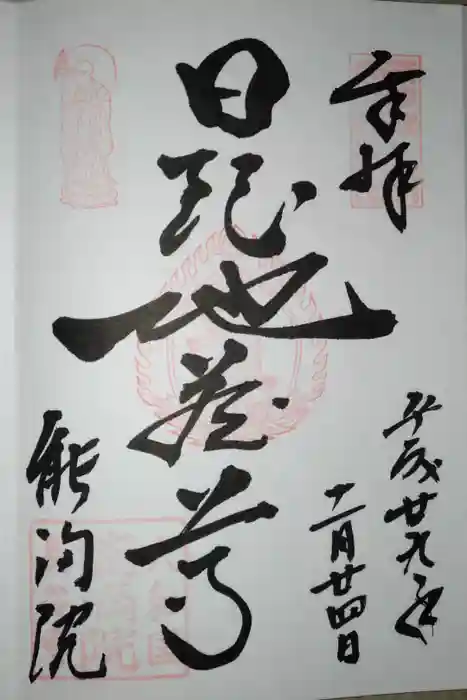 奉拝
平成廿九年
十二月廿四日
日限地蔵尊
能満院